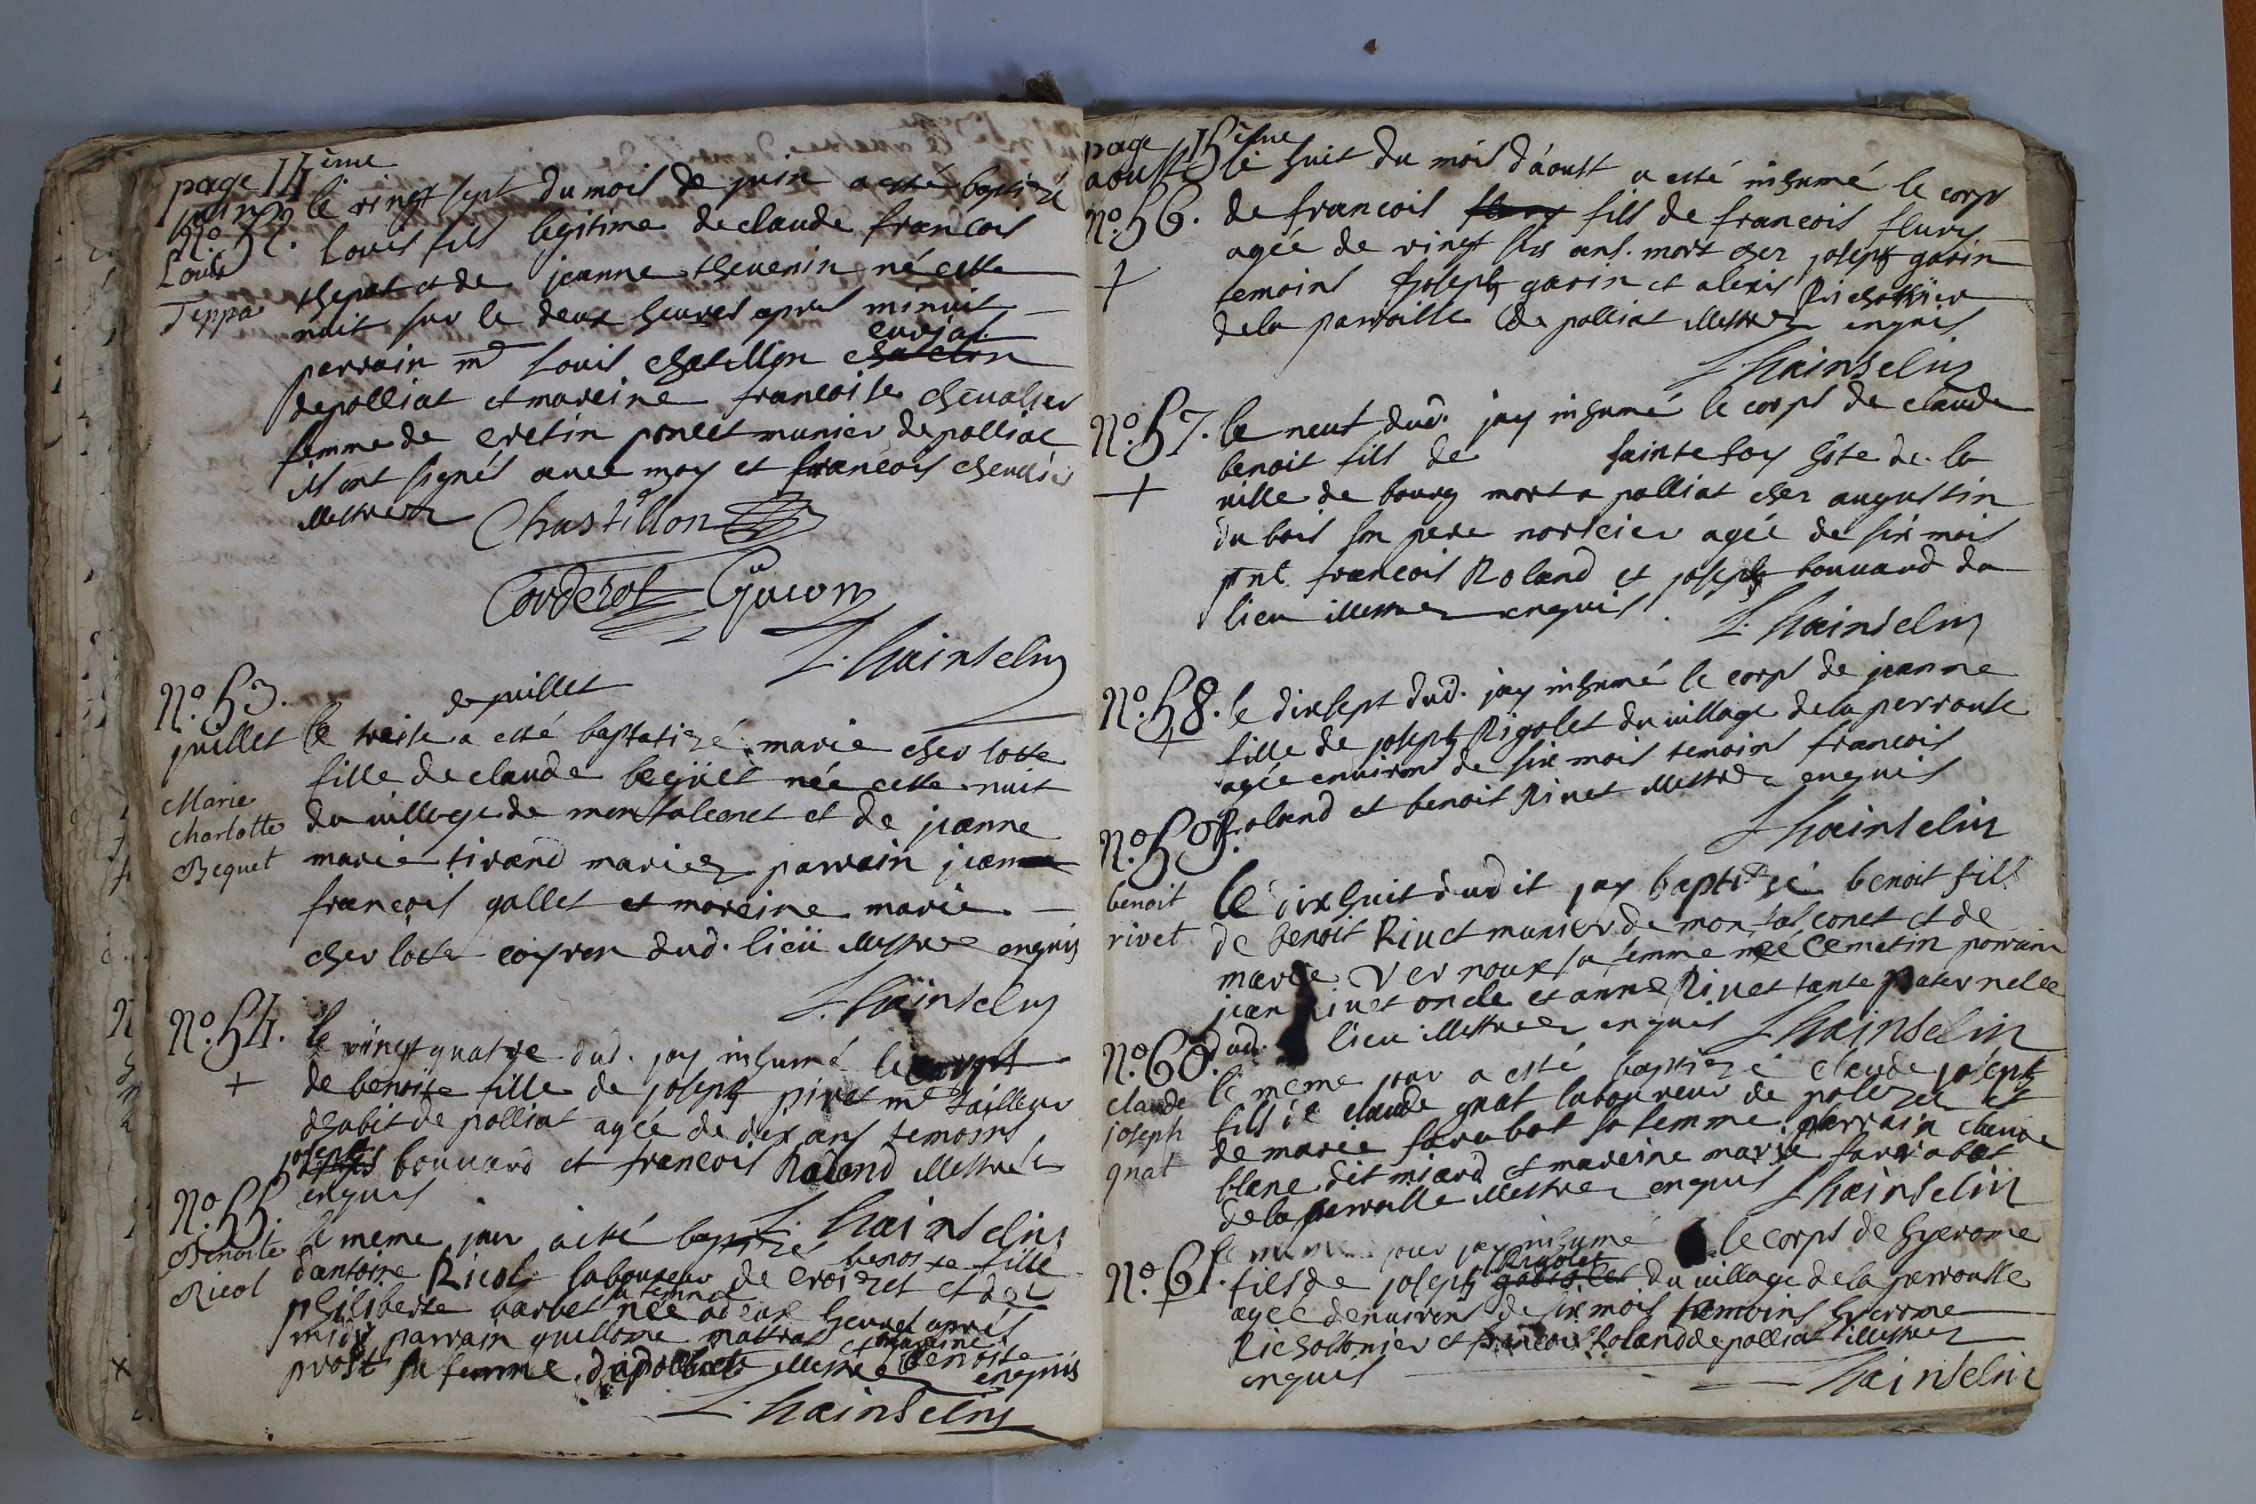 page 14ème
juin le vingt sept du mois de juin a esté baptizé
N°. 52. Louis fils legitime de claude francois
Louis
Teppa
thepat et de jeanne thevenin né cette
nuit sur le deux heures apres minuit
curial
parrain mr Louis chatillon chatelon
de polliat et mareine francoise chevalier
femme de cretin poncet munier de polliat
ils ont signés avec moy et francois chevalier
illettrez Chastillon
Couderot Guion
L. hainselin
N°. 53. de juillet
juillet le treise a esté baptatizé marie cher lotte
fille de claude bequet née cette nuit
Marie
charlotte
Bequet
du village de montalconet et de jeanne
marie tirand mariez parrain jean
francois gallet et mareine marie
cher lotte coyron dud. lieü illettre enquis
L. hainselin
N°. 54. le vingt quatre dud. jay inhumé le corps
+ de benoite fille de joseph piret me tailleur
dhabit de polliat agée de dix ans temoins
joseph bouvard et francois Roland illettrez
enquis
L. hainselin
N°. 55. le meme jour a esté baptizé benoite fille
Benoite
Ricol
dantoine Ricol laboureur de croizet et de
philiberte barbet sa femme née a deux heures aprés
midy parrain guillome mattras et mareine benoite
prost sa femme de polliat illettrez enquis
L. hainselin
page 15ème
aoust le huit du mois d'aoust a esté inhumé le corps
N°. 56. de francois fleury fils de francois fleury
+ agée de vingt six ans. mort chez joseph gavin
temoins joseph gavin et alexis Richottier
de la parroisse de polliat illettrez enquis
L hainselin
N°. 57. le neuf dud. jay inhumé le corps de claude
+ benoit fils de sainte foy hôte de la
ville de bourg mort a polliat chez augustin
du bois son pere norricier agée de six mois
pnt francois Roland et joseph bouvard du
lieu illettrez enquis.
L. hainselin
N°. 58. le dixsept dud. jay inhumé le corps de jeanne
+ fille de joseph Rigolet du village de la perrouse
agée environs de six mois temoins francois
Roland et benoit Rivet illettrez enquis
L hainselin
N°. 59.
benoit
rivet
le dixhuit dudit jay baptizé benoit fils
de benoit Rivet munier de montalconet et de
marie Vernoux sa femme né ce matin parrain
jean Rivet oncle et anne Rivet tante paternelle
dud. lieu illettrez enquis L hainselin
N°. 60. le meme jour a esté baptizé claude joseph
claude
joseph
gnat
fils de claude gnat laboureur de polezeu et
de marie farabot sa femme parrain claude
blanc dit miard et mareine marie farabot
de la parroisse illettrez enquis L hainselin
N°. 61. le meme jour jay inhumé le corps de hyerome
+ fils de joseph Rigolet du village de la perrousse
agée denvirons de six mois temoins hyerome
Richottonier et francois Roland de polliat illettrez
enquis L hainselin